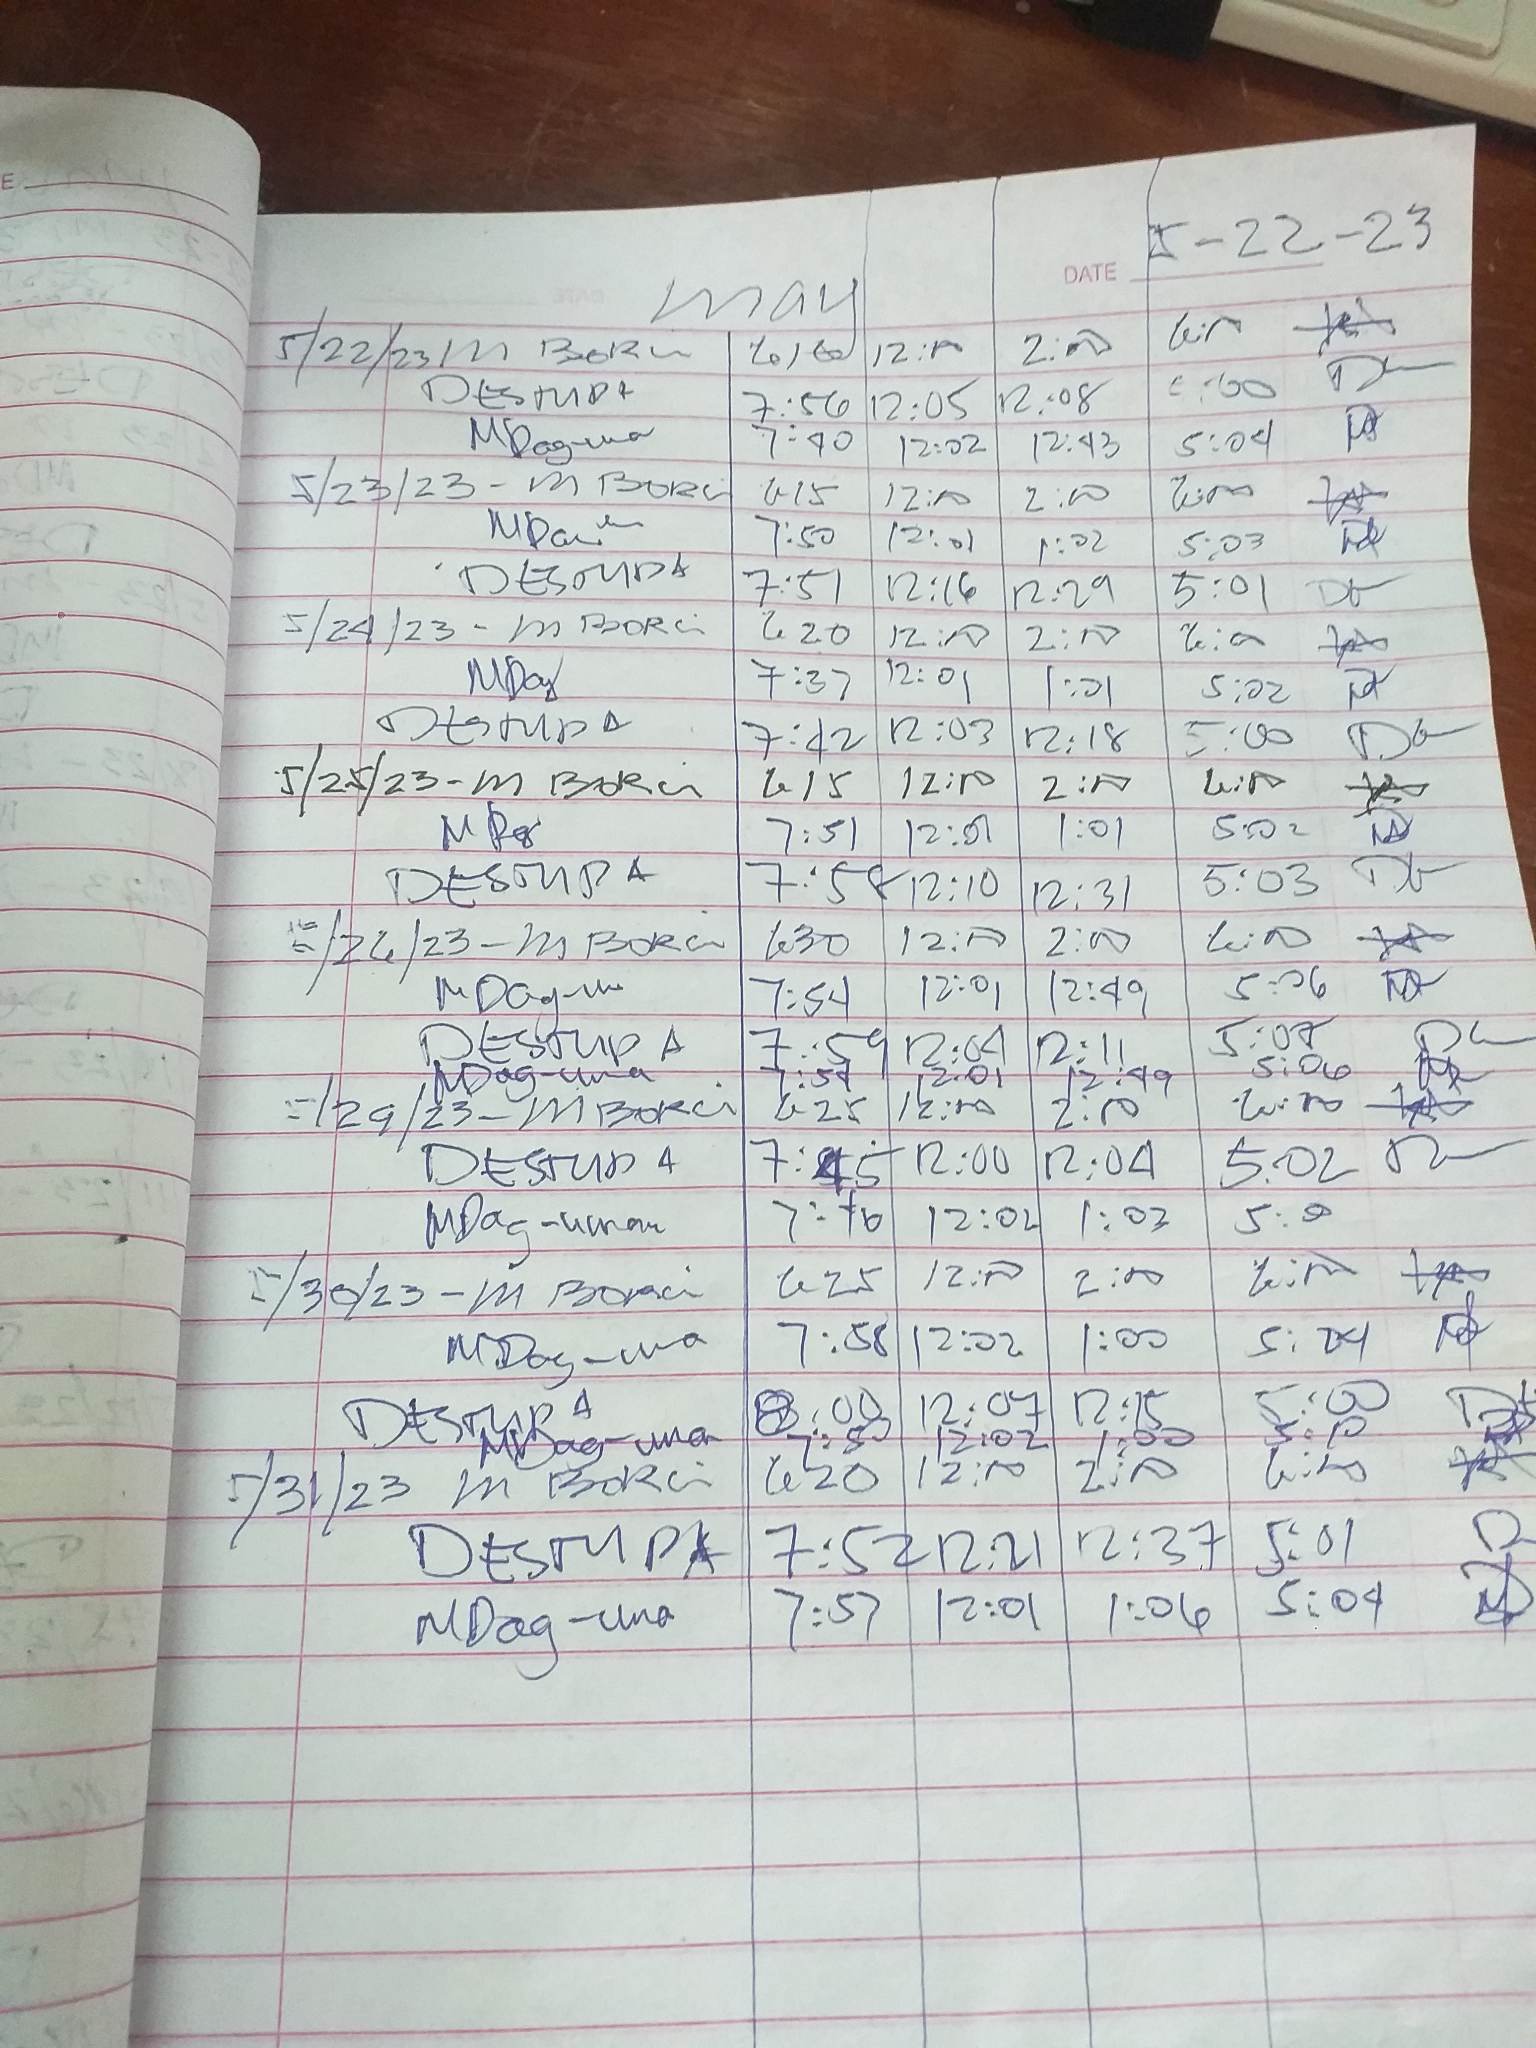 DATE 5-22-23
May
5/22/23 M Borci 12:00 2:00 6:00
DESTUPA 7:56 12:05 12:08 5:00
MDag-una 7:40 12:02 12:43 5:04
5/23/23 - M Borci 615 12:00 2:00 6:00
7:50 12:01 1:02 5:03
DESTUPA 7:51 12:16 12:29 5:01
5/24/23 - M Borci 620 12:00 2:00 6:00
MDag 7:37 12:01 1:01 5:02
DESTUPA 7:42 12:03 12:18 5:00
5/25/23 - M Borci 615 12:00 2:00 6:00
7:51 12:01 1:01 5:02
DESTUPA 7:58 12:10 12:31 5:03
5/26/23 - M Borci 630 12:00 2:00 6:00
MDag-un 7:54 12:01 12:49 5:06
DESTUPA 7:59 12:04 12:11 5:08
MDag-una 7:54 12:01 12:49 5:06
5/29/23 - M Borci 625 12:00 2:00 6:00
DESTUPA 7:45 12:00 12:04 5:02
MDag-unan 12:02 1:03
5/30/23 - M Borci 625 12:00 2:00 6:00
MDag-una 7:58 12:02 1:00 5:04
DESTUPA 8:00 12:07 12:15 5:00
MDag-una 12:02 1:00
5/31/23 M Borci 620 12:00 2:00 6:00
DESTUPA 7:52 12:21 12:37 5:01
MDag-una 7:57 12:01 1:06 5:04